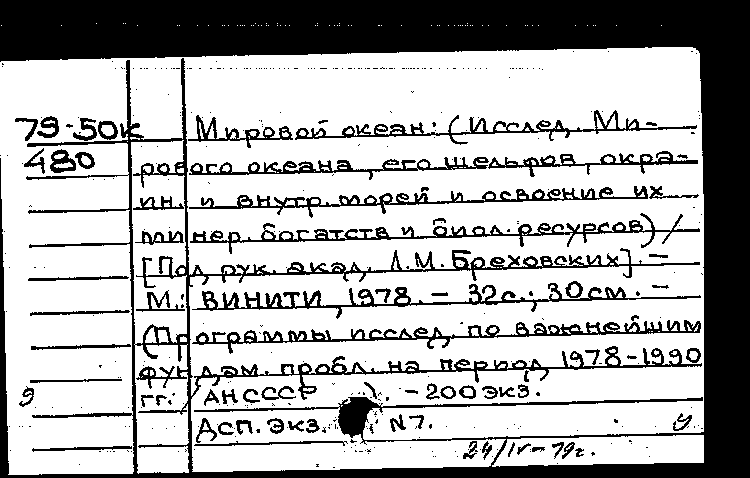 79-50к Мировой океан: (Исслед. Ми-
480 рового океана, его шельфов, окра-
ин. и внутр. морей и освоение их
минер. богатств и биол. ресурсов) /
[Под рук. акад. Л.М. Бреховских]. —
М.: ВИНИТИ, 1978. — 32с.; 30см. —
(Программы исслед. по важнейшим
фундам. пробл. на период 1978-1990
гг. / АН СССР ). — 200 экз.
Дсп. экз. N7.
24/IV-79г.